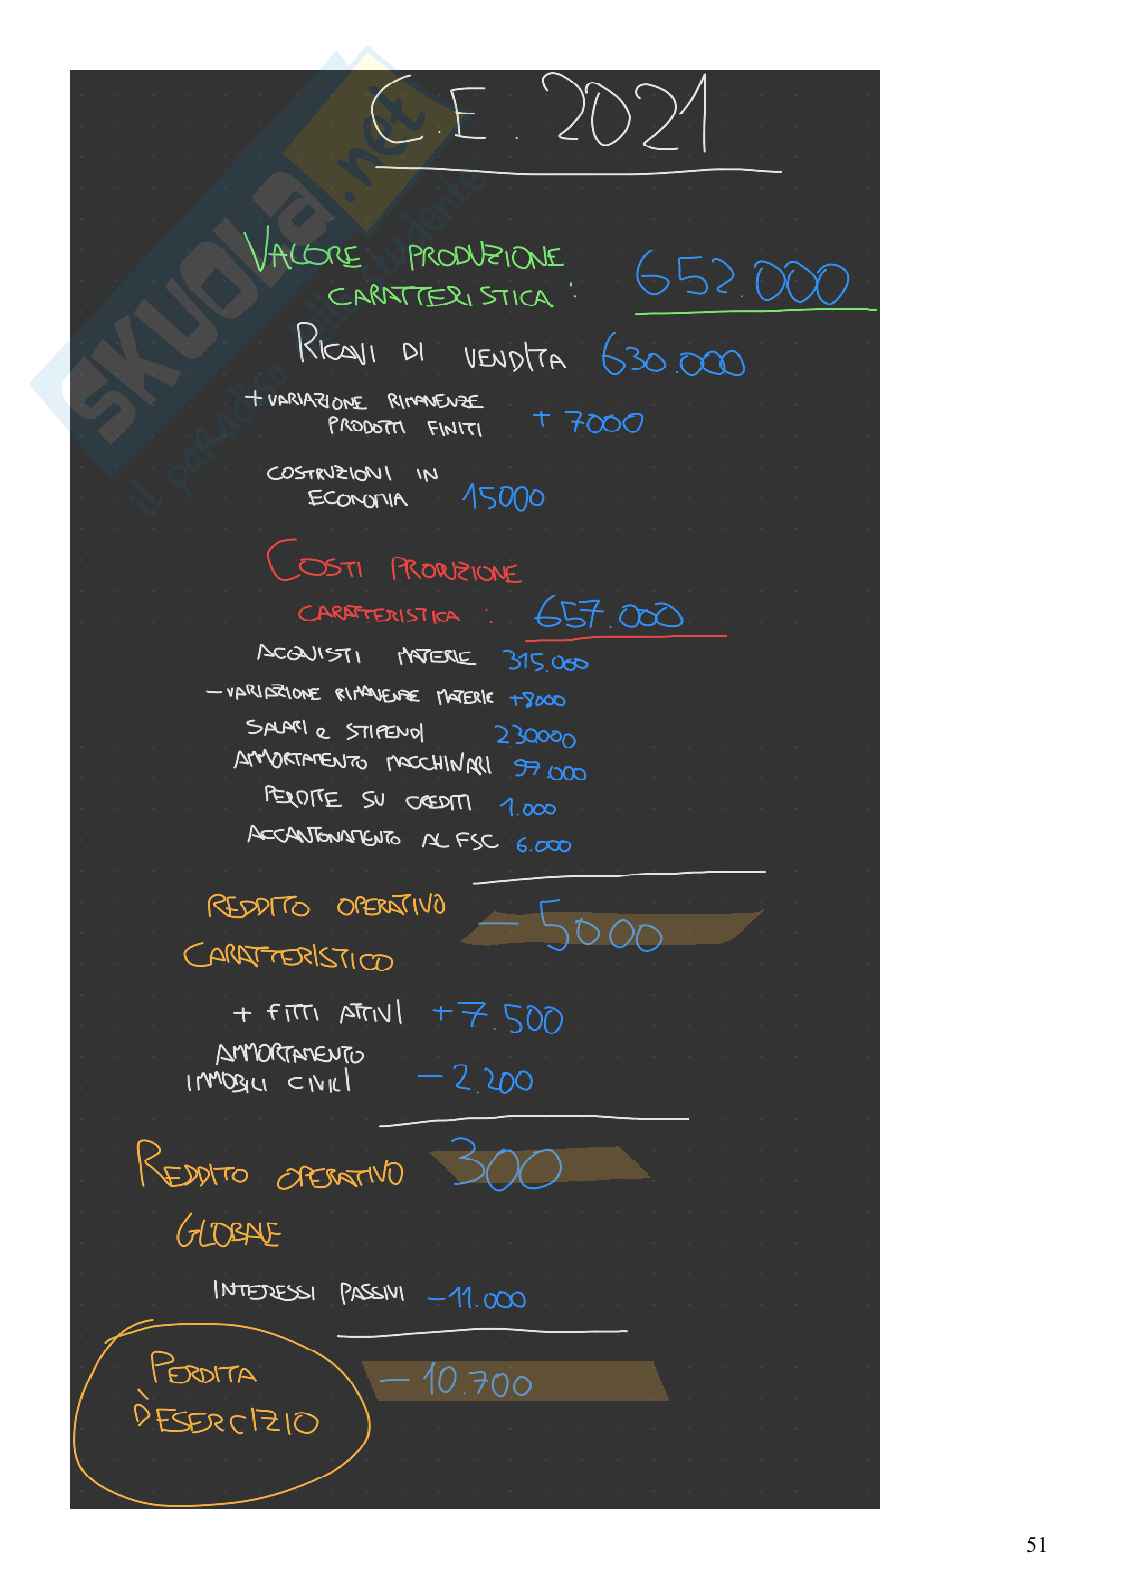 C.E. 2021
VALORE PRODUZIONE
CARATTERISTICA: 652.000
RICAVI DI VENDITA 630.000
+ VARIAZIONE RIMANENZE
PRODOTTI FINITI + 7000
COSTRUZIONI IN
ECONOMIA 15000
COSTI PRODUZIONE
CARATTERISTICA: 657.000
ACQUISTI MATERIE 315.000
- VARIAZIONE RIMANENZE MATERIE +8000
SALARI e STIPENDI 230000
AMMORTAMENTO MACCHINARI 97.000
PERDITE SU CREDITI 1.000
ACCANTONAMENTO AL FSC 6.000
REDDITO OPERATIVO - 5000
CARATTERISTICO
+ FITTI ATTIVI + 7.500
AMMORTAMENTO
IMMOBILI CIVILI - 2.200
REDDITO OPERATIVO 300
GLOBALE
INTERESSI PASSIVI - 11.000
PERDITA - 10.700
D'ESERCIZIO
SKUOLA.net
il paradiso dello studente
51